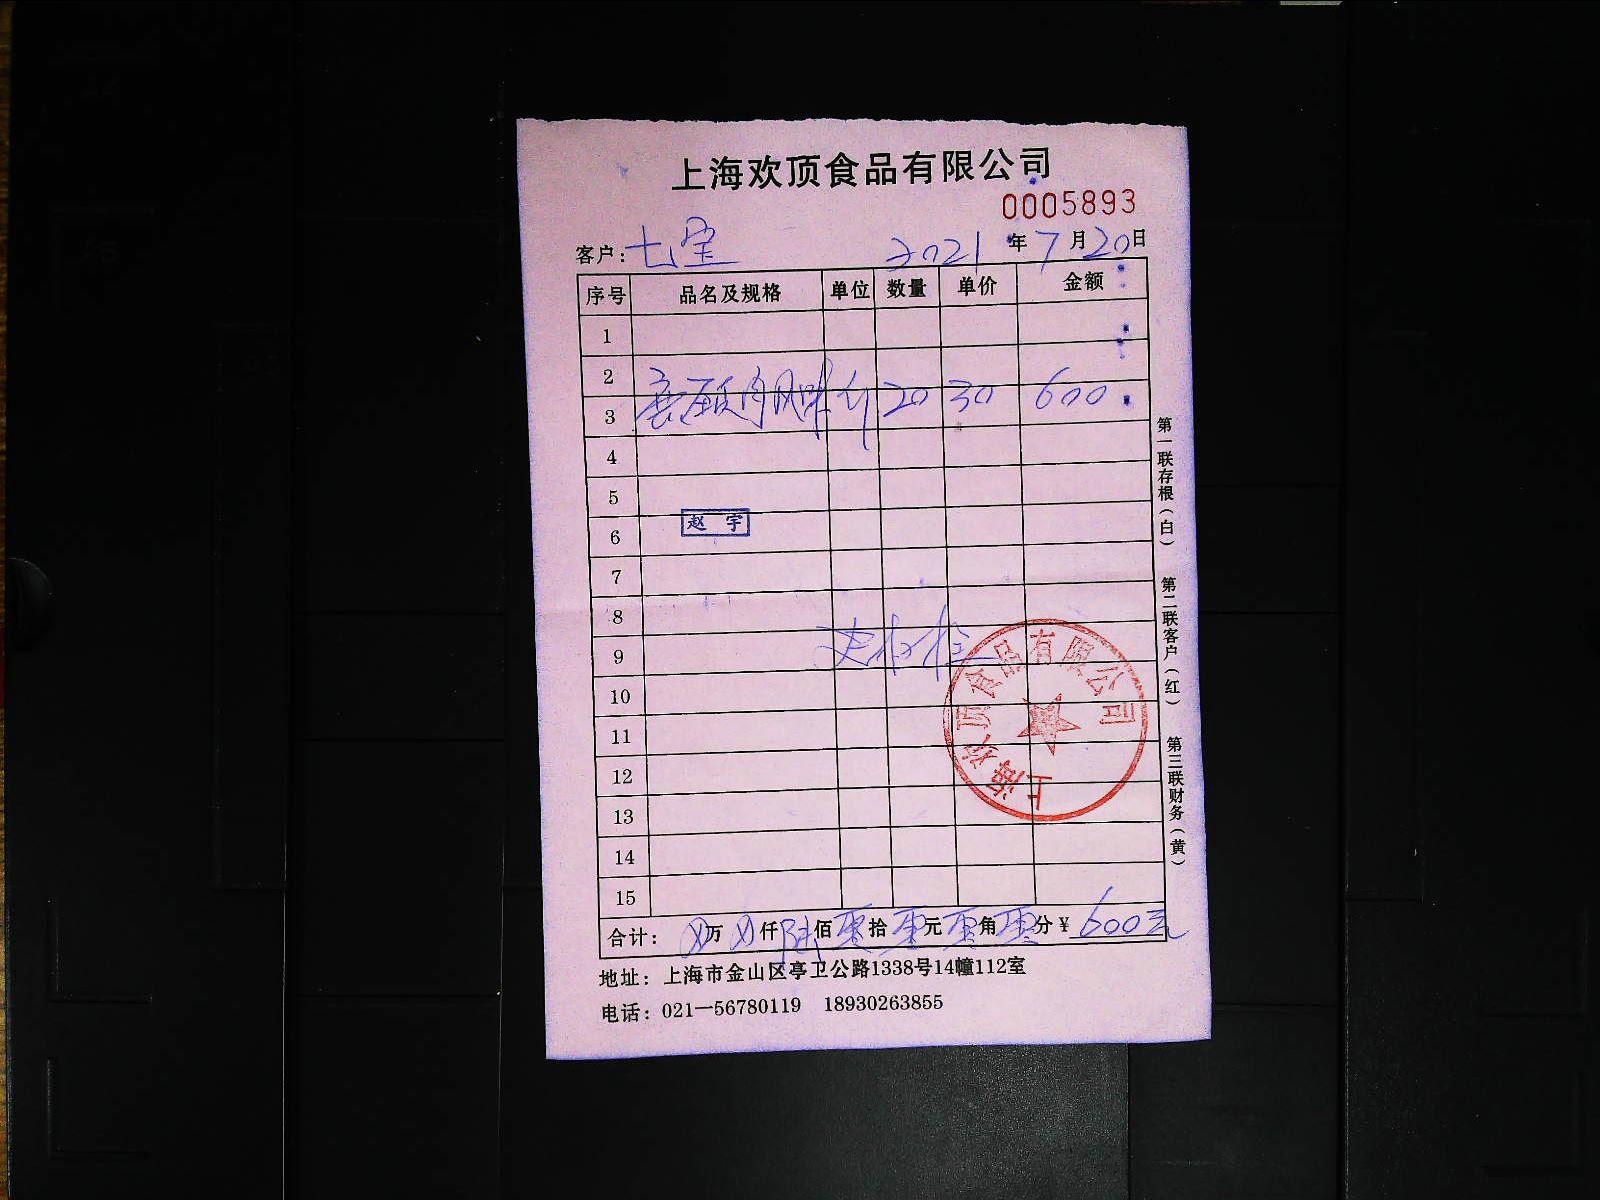 上海欢顶食品有限公司
0005893
客户：七宝 2021年7月20日
序号 品名及规格 单位 数量 单价 金额
1
2
3 肉风味 个 20 30 600
4
5
6 赵宇
7
8
9
10
11
12
13
14
15
上海欢顶食品有限公司
合计：万 仟 陆佰零拾零元零角零分￥600元
地址：上海市金山区亭卫公路1338号14幢112室
电话：021—56780119 18930263855
第一联存根（白） 第二联客户（红） 第三联财务（黄）